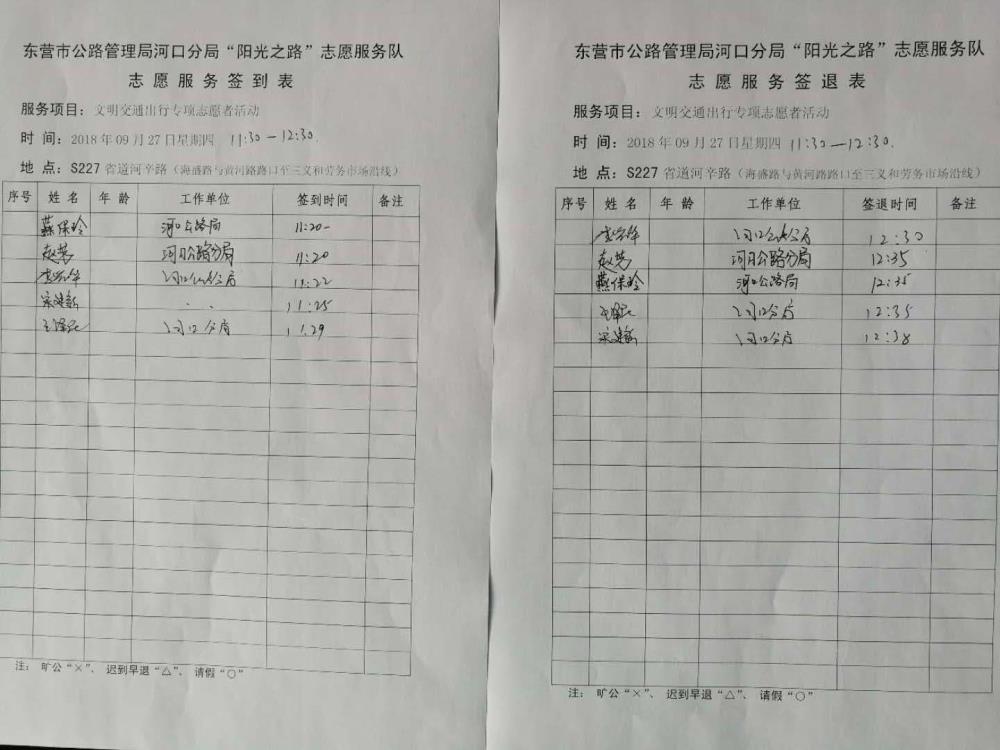 东营市公路管理局河口分局“阳光之路”志愿服务队
志愿服务签到表
服务项目：文明交通出行专项志愿者活动
时 间：2018年09月27日星期四 11:30—12:30
地 点：S227省道河辛路（海盛路与黄河路路口至三义和劳务市场沿线）
序号 姓名 年龄 工作单位 签到时间 备注
燕保玲 河口公路局 11:20
赵芳 河口公路分局 11:20
河口公路分局 11:22
宋建新 〃 11:25
河口分局 11:29
注： 旷公“×”、 迟到早退“△”、 请假“○”
东营市公路管理局河口分局“阳光之路”志愿服务队
志愿服务签退表
服务项目：文明交通出行专项志愿者活动
时 间：2018年09月27日星期四 11:30—12:30.
地 点：S227省道河辛路（海盛路与黄河路路口至三义和劳务市场沿线）
序号 姓名 年龄 工作单位 签退时间 备注
河口公路分局 12:30
赵芳 河口公路分局 12:35
燕保玲 河口公路局 12:35
河口分局 12:35
宋建新 河口分局 12:38
注： 旷公“×”、 迟到早退“△”、 请假“○”